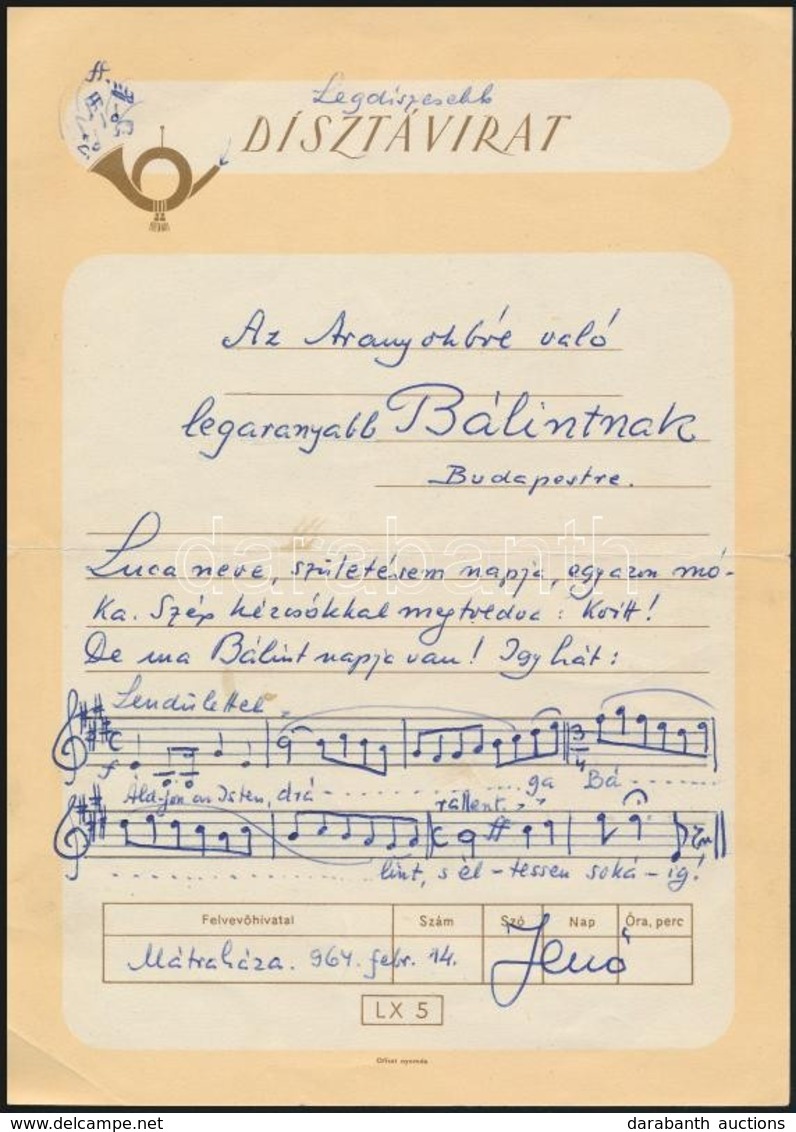 ff.
Legdíszesebb
DÍSZTÁVIRAT
Az Aranyokbré való
legaranyabb Bálintnak
Budapestre.
darabanth
Luca neve, születésem napja, egyazon mó-
ka. Szép kézcsókkal megtoldva: Kvitt!
De ma Bálint napja van! Igy hát:
Lendülettel
f
Áld-jon an Isten, drá - - - ga Bá - - -
rallent.
ff
- - - lint, s él-tessen soká-ig!
Felvevőhivatal Szám Szó Nap Óra, perc
Mátraháza. 964. febr. 14. Jenő
LX 5
Offset nyomda
darabanth auctions